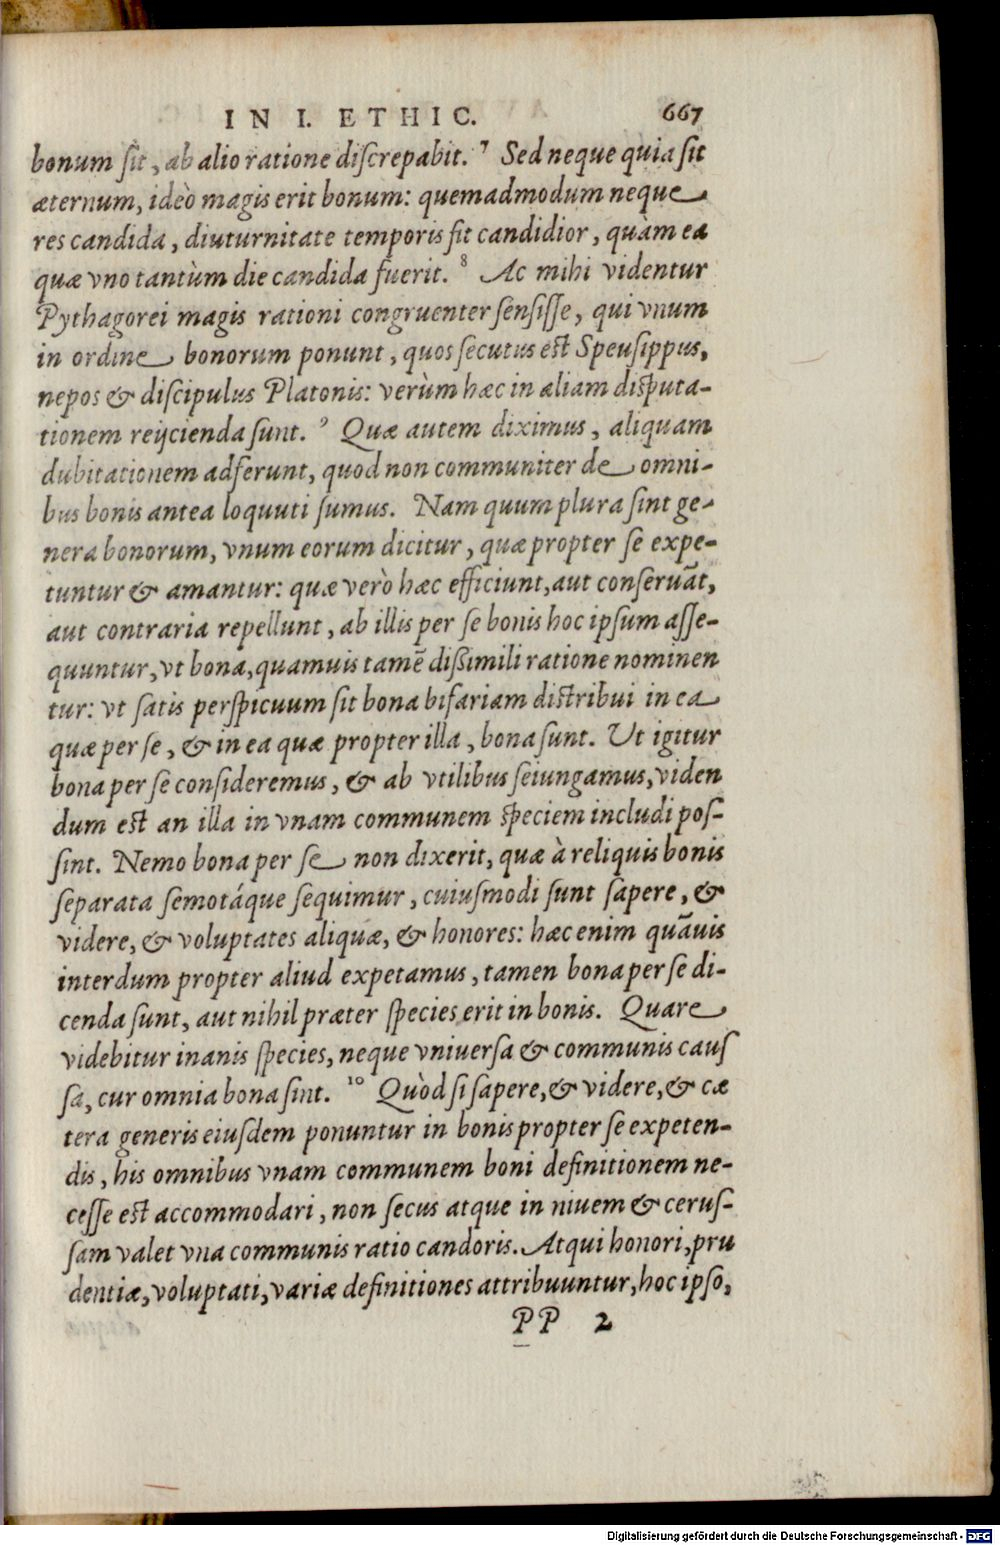 IN I. ETHIC. 667
bonum sit, ab alio ratione discrepabit. 7 Sed neque quia sit
æternum, ideò magis erit bonum: quemadmodum neque
res candida, diuturnitate temporis fit candidior, quàm ea
quæ vno tantùm die candida fuerit. 8 Ac mihi videntur
Pythagorei magis rationi congruenter sensisse, qui vnum
in ordine bonorum ponunt, quos secutus est Speusippus,
nepos & discipulus Platonis: verùm hæc in aliam disputa-
tionem reijcienda sunt. 9 Quæ autem diximus, aliquam
dubitationem adferunt, quod non communiter de omni-
bus bonis antea loquuti sumus. Nam quum plura sint ge-
nera bonorum, vnum eorum dicitur, quæ propter se expe-
tuntur & amantur: quæ verò hæc efficiunt, aut conseruāt,
aut contraria repellunt, ab illis per se bonis hoc ipsum asse-
quuntur, vt bona, quamuis tamē dissimili ratione nominen
tur: vt satis perspicuum sit bona bifariam distribui in ea
quæ per se, & in ea quæ propter illa, bona sunt. Ut igitur
bona per se consideremus, & ab vtilibus seiungamus, viden
dum est an illa in vnam communem speciem includi pos-
sint. Nemo bona per se non dixerit, quæ à reliquis bonis
separata semotáque sequimur, cuiusmodi sunt sapere, &
videre, & voluptates aliquæ, & honores: hæc enim quāuis
interdum propter aliud expetamus, tamen bona per se di-
cenda sunt, aut nihil præter species erit in bonis. Quare
videbitur inanis species, neque vniuersa & communis caus
sa, cur omnia bona sint. 10 Quòd si sapere, & videre, & cæ
tera generis eiusdem ponuntur in bonis propter se expeten-
dis, his omnibus vnam communem boni definitionem ne-
cesse est accommodari, non secus atque in niuem & cerus-
sam valet vna communis ratio candoris. Atqui honori, pru
dentiæ, voluptati, variæ definitiones attribuuntur, hoc ipso,
PP 2
Digitalisierung gefördert durch die Deutsche Forschungsgemeinschaft - DFG